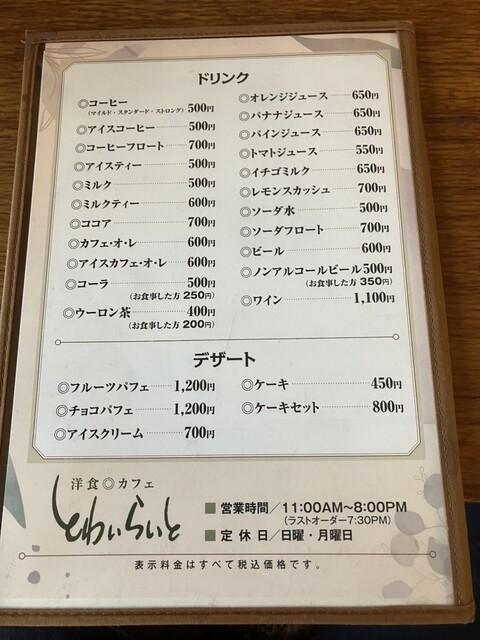 ドリンク
◎コーヒー 500円
(マイルド・スタンダード・ストロング)
◎アイスコーヒー 500円
◎コーヒーフロート 700円
◎アイスティー 500円
◎ミルク 500円
◎ミルクティー 600円
◎ココア 700円
◎カフェ・オ・レ 600円
◎アイスカフェ・オ・レ 600円
◎コーラ 500円
(お食事した方 250円)
◎ウーロン茶 400円
(お食事した方 200円)
◎オレンジジュース 650円
◎バナナジュース 650円
◎パインジュース 650円
◎トマトジュース 550円
◎イチゴミルク 650円
◎レモンスカッシュ 700円
◎ソーダ水 500円
◎ソーダフロート 700円
◎ビール 600円
◎ノンアルコールビール 500円
(お食事した方 350円)
◎ワイン 1,100円
デザート
◎フルーツパフェ 1,200円
◎チョコパフェ 1,200円
◎アイスクリーム 700円
◎ケーキ 450円
◎ケーキセット 800円
洋食◎カフェ
とわいらいと
■営業時間/11:00AM〜8:00PM
(ラストオーダー7:30PM)
■定休日/日曜・月曜日
表示料金はすべて税込価格です。